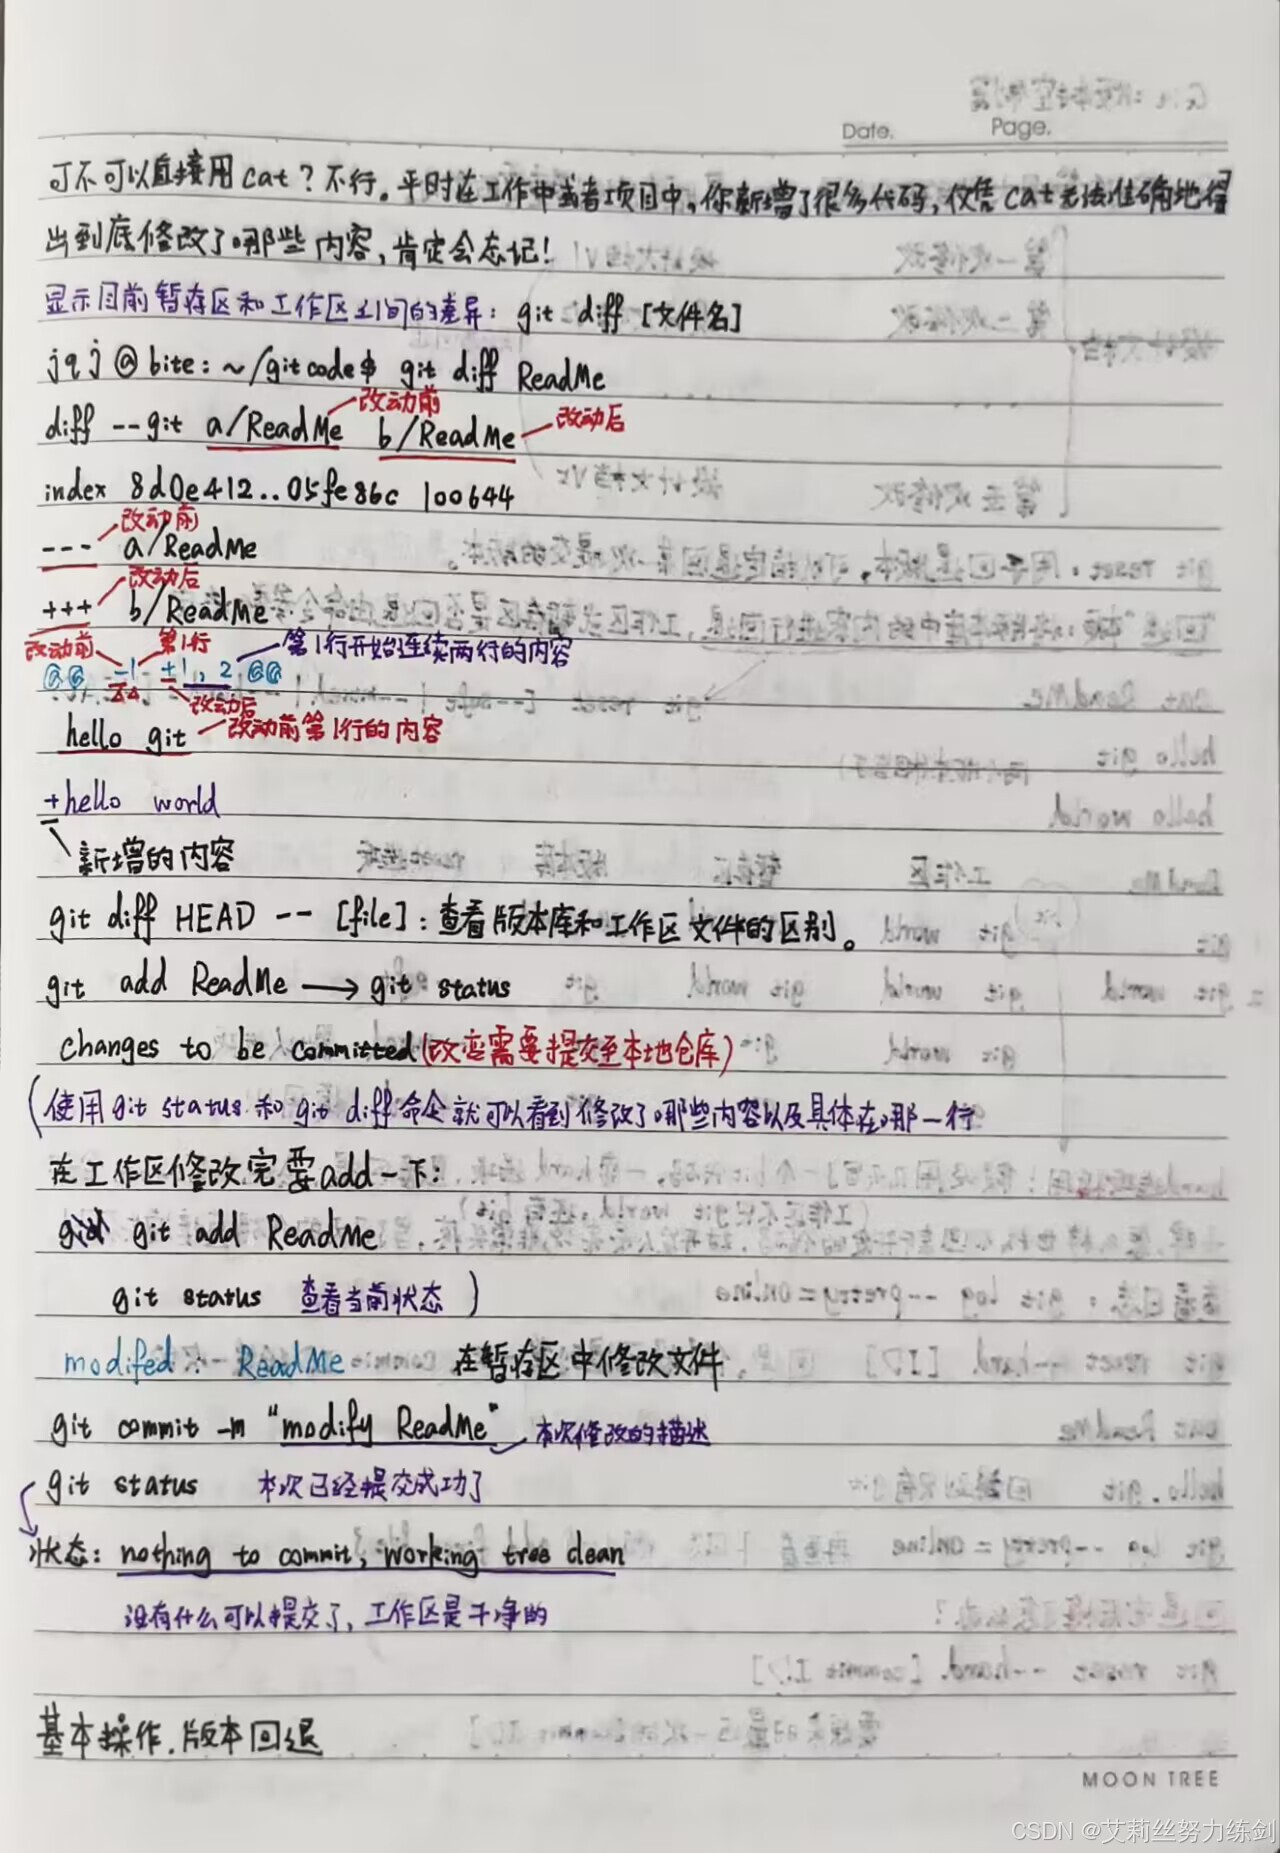 Date. Page.
可不可以直接用cat？不行。平时在工作中或者项目中，你新增了很多代码，仅凭cat无法准确地得
出到底修改了哪些内容，肯定会忘记！
显示目前暂存区和工作区之间的差异：git diff [文件名]
jqj@bite:~/gitcode$ git diff ReadMe
改动前
diff --git a/ReadMe b/ReadMe 改动后
index 8d0e412..05fe86c 100644
改动前
--- a/ReadMe
改动后
+++ b/ReadMe
改动前 第1行 第1行开始连续两行的内容
@@ -1 +1,2 @@
改动后
hello git 改动前第1行的内容
+hello world
新增的内容
git diff HEAD -- [file]：查看版本库和工作区文件的区别。
git add ReadMe → git status
changes to be committed(改变需要提交至本地仓库)
(使用git status和git diff命令就可以看到修改了哪些内容以及具体在哪一行
在工作区修改完要add一下：
git add ReadMe
git status 查看当前状态)
modifed: ReadMe 在暂存区中修改文件
git commit -m "modify ReadMe" 本次修改的描述
git status 本次已经提交成功了
状态：nothing to commit, working tree clean
没有什么可以提交了，工作区是干净的
基本操作.版本回退
MOON TREE
CSDN @艾莉丝努力练剑